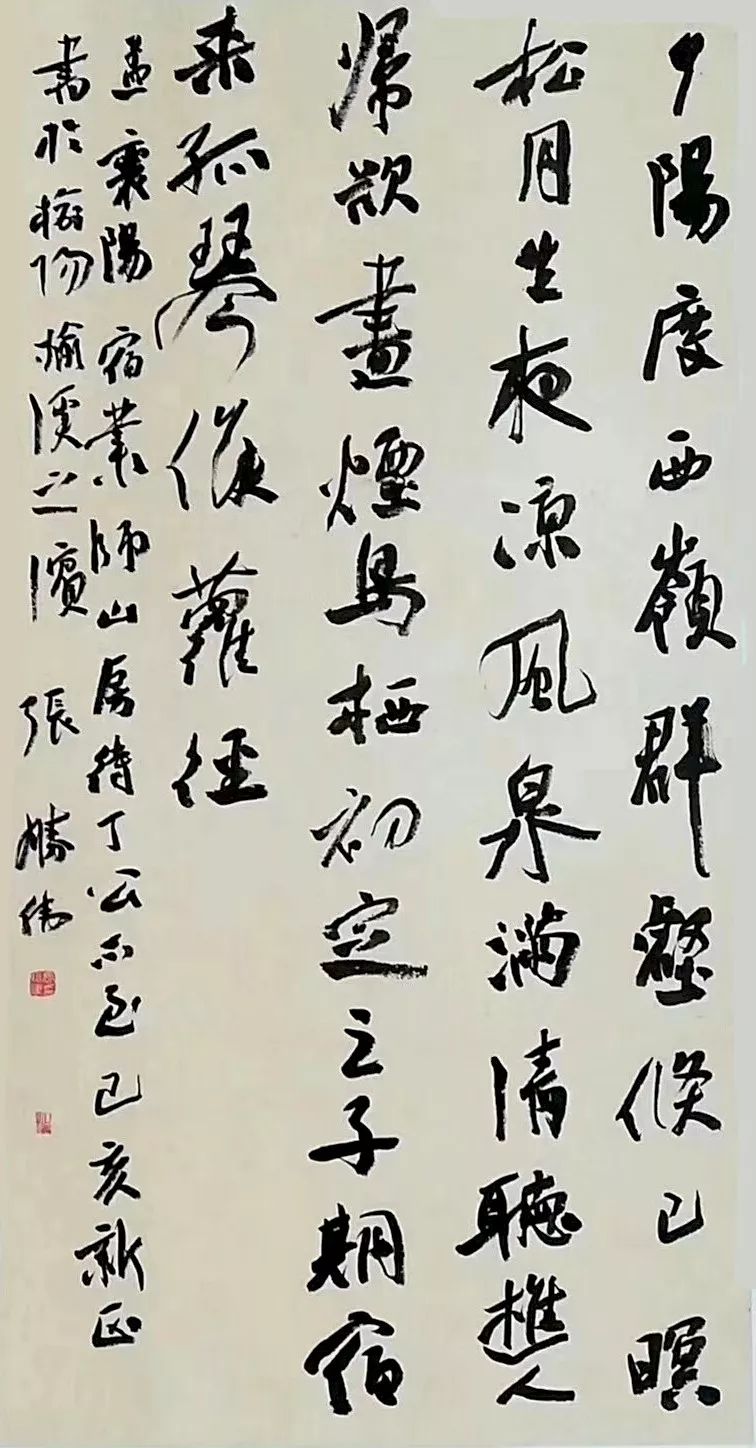 夕陽度西嶺群壑倏已暝
松月生夜涼風泉滿清聽樵人
歸欲盡煙鳥栖初定之子期宿
来孤琴候蘿徑
孟襄陽宿業師山房待丁公不至己亥新正
書於榆陽榆溪之濱 張勝偉